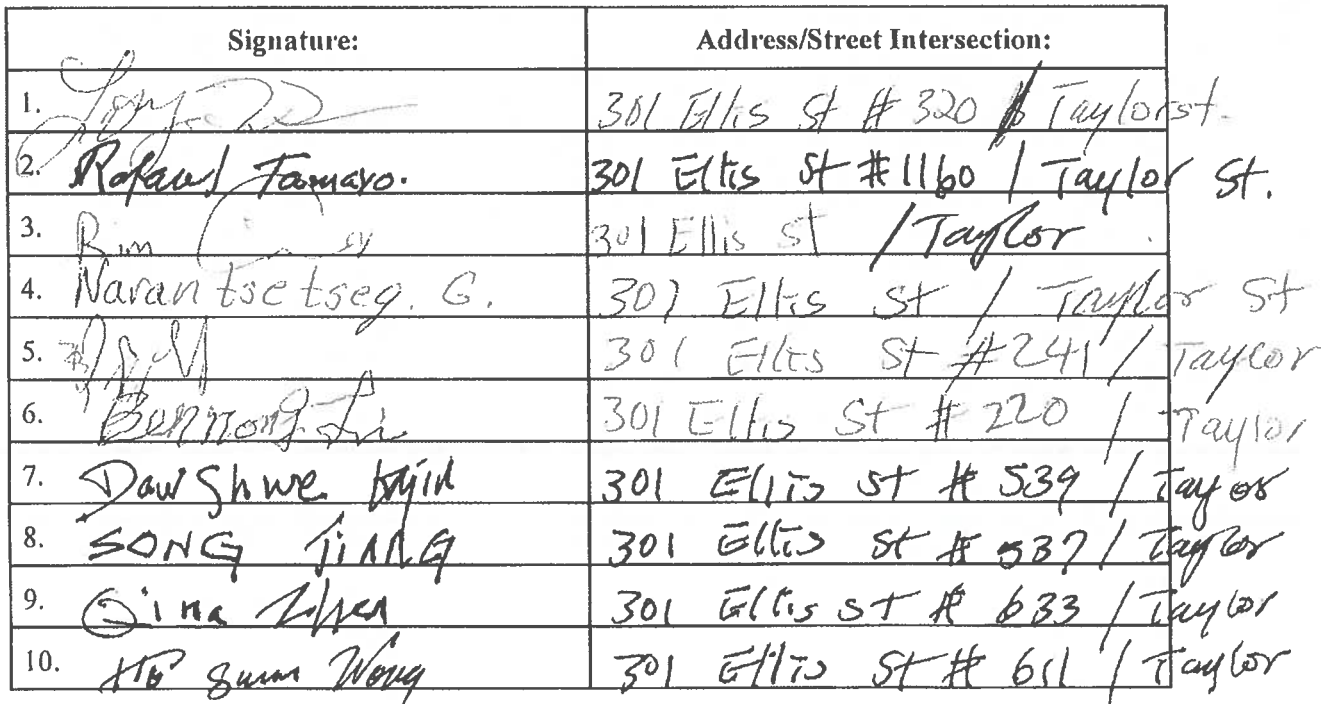 Signature: Address/Street Intersection:
1. 301 Ellis St # 320 / Taylor st.
2. Rafael Tamayo. 301 Ellis St # 1160 / Taylor St.
3. 301 Ellis St / Taylor
4. Narantsetseg. G. 301 Ellis St / Taylor St
5. 301 Ellis St # 241 / Taylor
6. 301 Ellis St # 220 / Taylor
7. Daw Shwe 301 Ellis St # 539 / Taylor
8. SONG JIANG 301 Ellis St # 537 / Taylor
9. 301 Ellis St # 633 / Taylor
10. Wong 301 Ellis St # 611 / Taylor